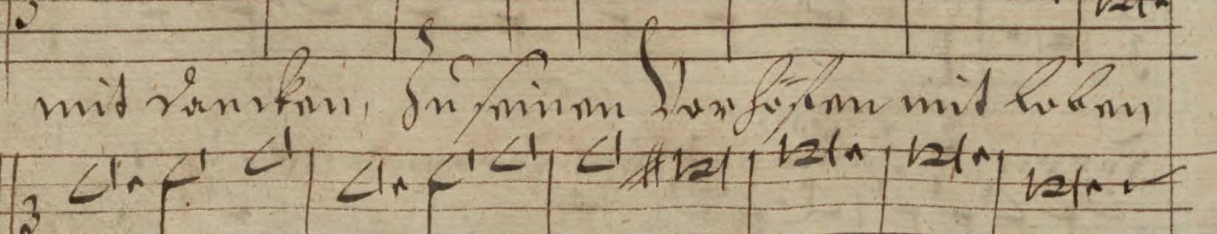 mit dancken, Zu seinen Vorhöffen mit loben
3